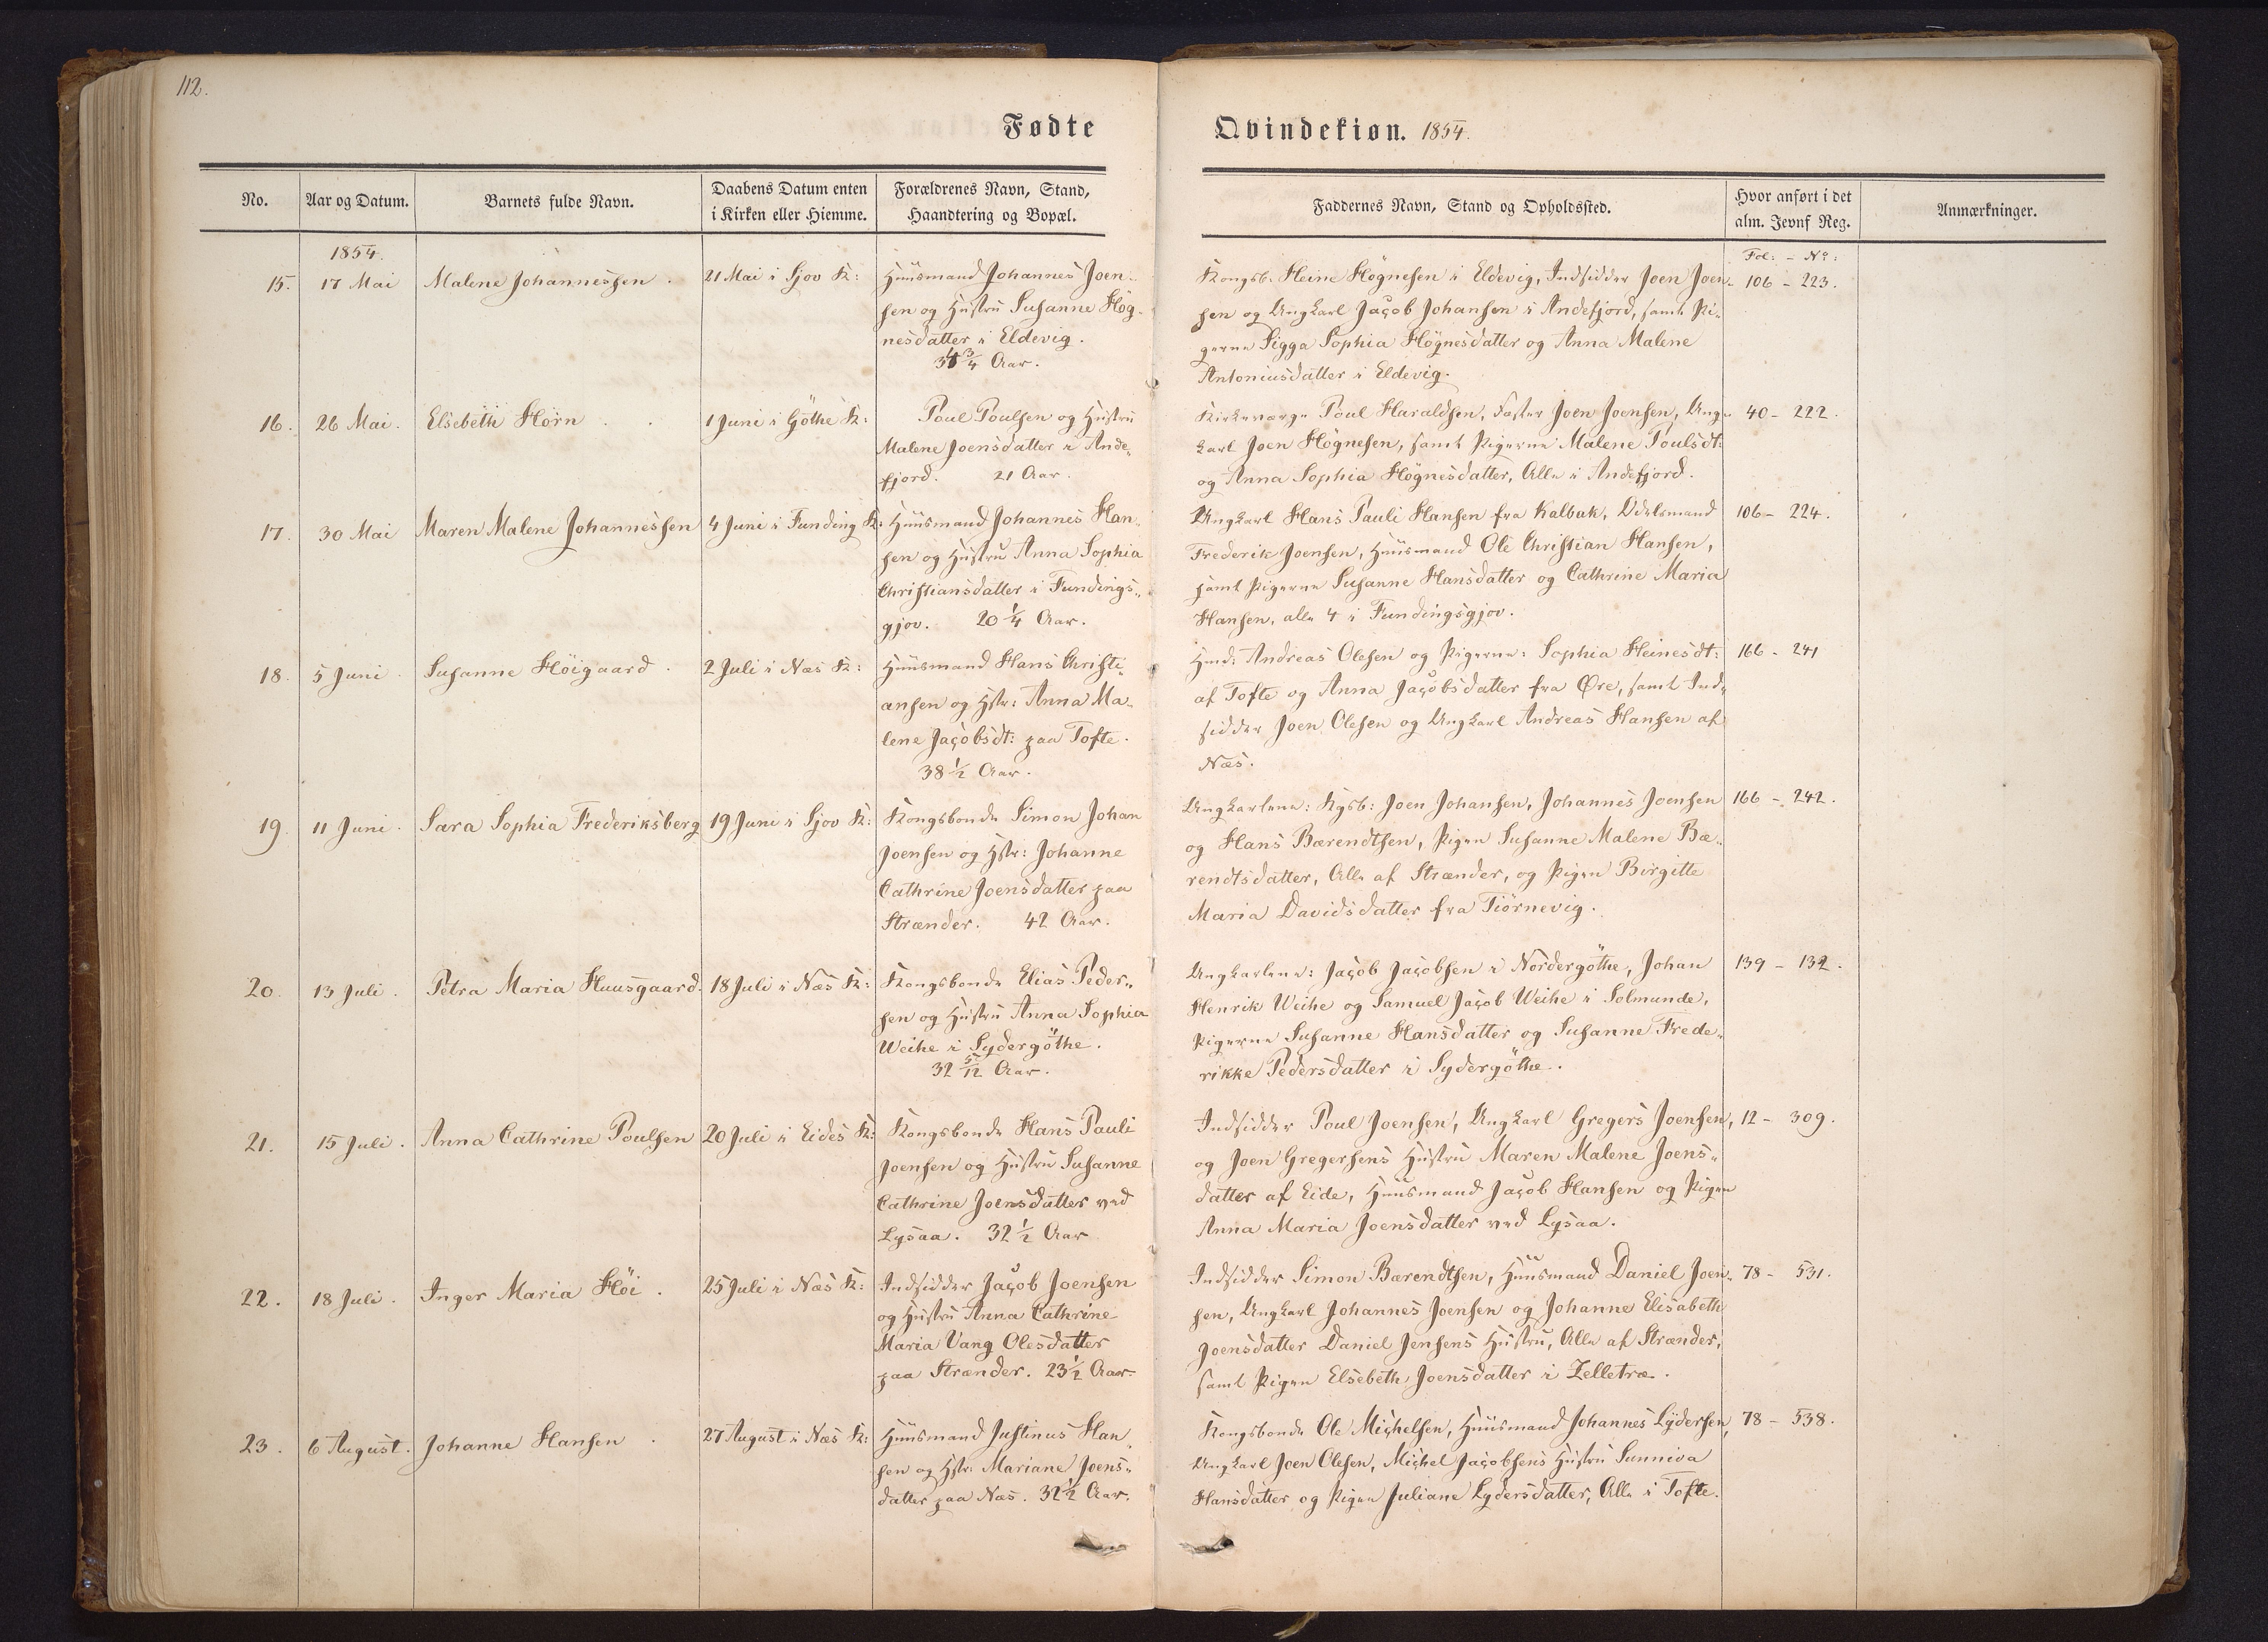 112.
Fødte
Qvindekiøn. 1854.
No.
Aar og Datum.
Barnets fulde Navn.
Daabens Datum enten
i Kirken eller Hiemme.
Forældrenes Navn, Stand,
Haandtering og Bopæl.
Faddernes Navn, Stand og Opholdssted.
Hvor anført i det
alm. Jevnf Reg.
Anmærkninger.
1854.
Fol: - No:
15. 17 Mai Malene Johannessen. 21 Mai i Gjov K:
Huusmand Johannes Joen-
sen og Hustru Susanne Høg-
nesdatter i Eldevig.
34 3/4 Aar.
Kongsb. Heine Høgnesen i Eldevig, Indsidder Joen Joen-
sen og Ungkarl Jacob Johansen i Andefjord, samt Pi-
gerne Sigga Sophia Högnesdatter og Anna Malene
Antoniusdatter i Eldevig.
106 - 223.
16. 26 Mai. Elsebeth Horn. 1 Juni i Göthe K:
Poul Poulsen og Hustru
Malene Joensdatter i Ande-
fjord. 21 Aar.
Kirkeværge Poul Haraldsen, Fæster Joen Joensen, Ung-
karl Joen Högnesen, samt Pigerne Malene Poulsdt:
og Anna Sophia Högnesdatter, Alle i Andefjord.
40 - 222.
17. 30 Mai Maren Malene Johannessen 4 Juni i Funding K:
Huusmand Johannes Han-
sen og Hustru Anna Sophia
Christiansdatter i Fundings-
gjov. 20 1/4 Aar.
Ungkarl Hans Pauli Hansen fra Kalbak, Odelsmand
Frederik Joensen, Huusmand Ole Christian Hansen,
samt Pigerne Susanne Hansdatter og Cathrine Maria
Hansen, alle 4 i Fundingsgjov.
106 - 224.
18. 5 Juni. Susanne Höigaard. 2 Juli i Næs K:
Huusmand Hans Christi-
ansen og Hstr: Anna Ma-
lene Jacobsdt: paa Tofte.
38 1/2 Aar.
Hmd: Andreas Olesen og Pigerne: Sophia Heinesdt:
af Tofte og Anna Jacobsdatter fra Øre, samt Ind-
sidder Joen Olesen og Ungkarl Andreas Hansen af
Næs.
166 - 241
19. 11 Juni. Sara Sophia Frederiksberg 19 Juni i Gjov K:
Kongsbonde Simon Johan
Joensen og Hstr: Johanne
Cathrine Joensdatter paa
Strænder. 42 Aar.
Ungkarlene: Kgsb: Joen Johansen, Johannes Joensen
og Hans Bærendtsen, Pigen Susanne Malene Bæ-
rendtsdatter, Alle af Strænder, og Pigen Birgitte
Maria Davidsdatter fra Tiörnevig.
166 - 242.
20. 13 Juli. Petra Maria Huusgaard. 18 Juli i Næs K:
Kongsbonde Elias Peder-
sen og Hustru Anna Sophia
Weihe i Sydergöthe.
32 5/12 Aar.
Ungkarlene: Jacob Jacobsen i Nordergöthe, Johan
Henrik Weihe og Samuel Jacob Weihe i Solmunde,
Pigerne Susanne Hansdatter og Susanne Frede-
rikke Pedersdatter i Sydergöthe.
139 - 132.
21. 15 Juli. Anna Cathrine Poulsen 20 Juli i Eides K:
Kongsbonde Hans Pauli
Joensen og Hustru Susanne
Cathrine Joensdatter ved
Lysaa. 32 1/2 Aar
Indsidder Poul Joensen, Ungkarl Gregers Joensen,
og Joen Gregersens Hustru Maren Malene Joens-
datter af Eide, Huusmand Jacob Hansen og Pigen
Anna Maria Joensdatter ved Lysaa.
12 - 309.
22. 18 Juli. Inger Maria Höi. 25 Juli i Næs K:
Indsidder Jacob Joensen
og Hustru Anna Cathrine
Maria Vang Olesdatter
paa Strænder. 23 1/2 Aar.
Indsidder Simon Bærendtsen, Huusmand Daniel Joen-
sen, Ungkarl Johannes Joensen og Johanne Elisabeth
Joensdatter Daniel Jensens Hustru, Alle af Strænder,
samt Pigen Elsebeth Joensdatter i Zelletræ.
78 - 531.
23. 6 August. Johanne Hansen. 27 August i Næs K:
Huusmand Justinus Han-
sen og Hstr. Mariane Joens-
datter paa Næs. 32 1/2 Aar.
Kongsbonde Ole Michelsen, Huusmand Johannes Lydersen,
Ungkarl Joen Olesen, Michel Jacobsens Hustru Sunniva
Hansdatter og Pigen Juliane Lydersdatter, Alle i Tofte.
78 - 538.